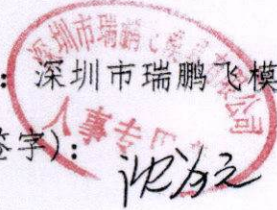 : 深圳市瑞鹏飞模
签字):
深圳市瑞鹏飞模具有限公司
人事专用